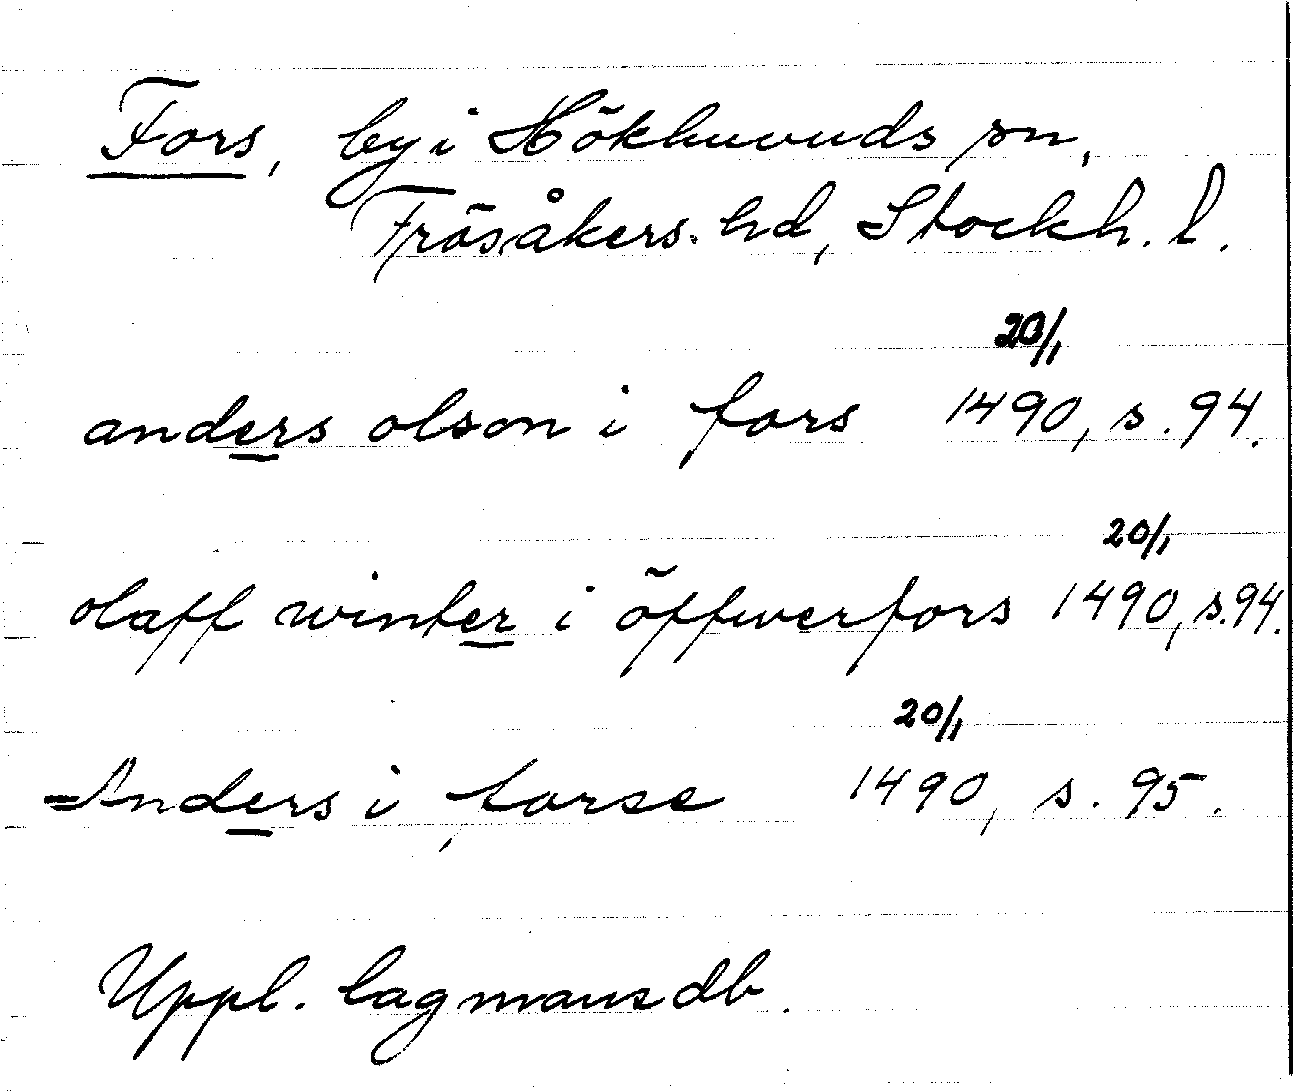 Fors, by i Hökhuvuds sn,
Frösåkers hd, Stockh. l.
20/1
anders olson i fors 1490, s. 94.
20/1
olaff winter i öffwerfors 1490, s. 94.
20/1
Anders i forse 1490, s. 95.
Uppl. lagmansdb.